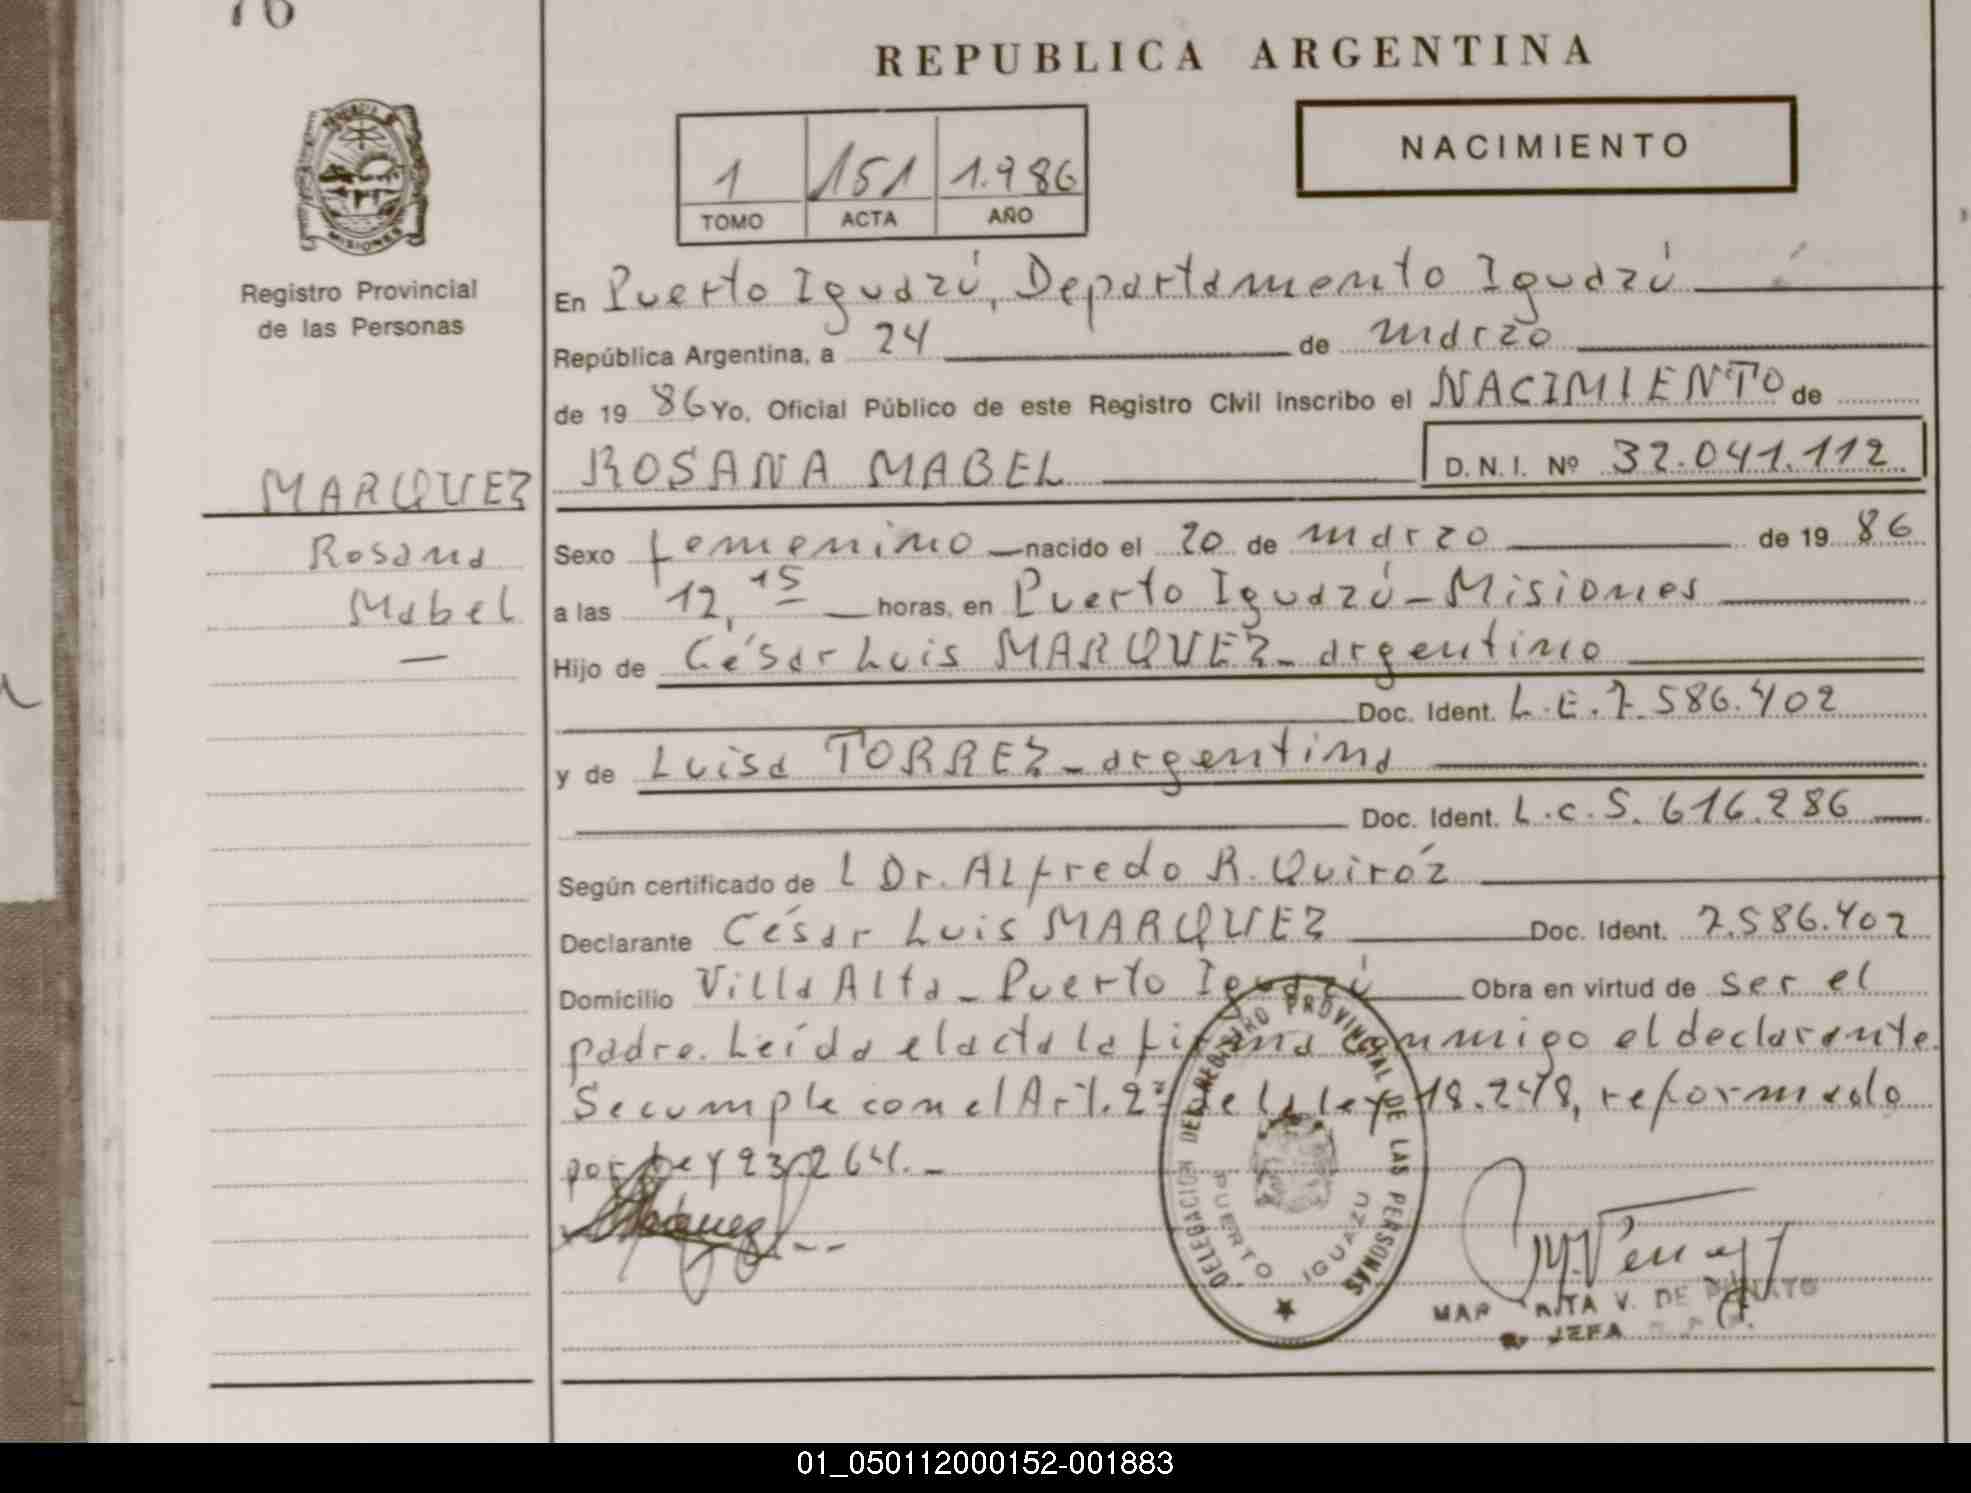 76
REPUBLICA ARGENTINA
NACIMIENTO
1 151 1.986
TOMO ACTA AÑO
PROVINCIA DE
MISIONES
Registro Provincial
de las Personas
En Puerto Iguazú, Departamento Iguazú
República Argentina, a 24 de marzo
de 19 86 Yo, Oficial Público de este Registro Civil inscribo el NACIMIENTO de
MARQUEZ ROSANA MABEL D.N.I. Nº 32.041.112
Rosana
Mabel
Sexo femenino nacido el 20 de marzo de 19 86
a las 12,15 horas, en Puerto Iguazú - Misiones
Hijo de César Luis MARQUEZ - argentino
Doc. Ident. L.E. 7.586.402
y de Luisa TORREZ - argentina
Doc. Ident. L.C. 5.616.286
Según certificado de l Dr. Alfredo R. Quiróz
Declarante César Luis MARQUEZ Doc. Ident. 7.586.402
Domicilio Villa Alta - Puerto Iguazú Obra en virtud de ser el
padre. Leída el acta la firma conmigo el declarante.
Se cumple con el Art. 2º de la ley 18.248, reformado
por ley 23.264. -
DELEGACION DEL REGISTRO PROVINCIAL DE LAS PERSONAS
PUERTO IGUAZU
V. DE
JEFA
01_050112000152-001883